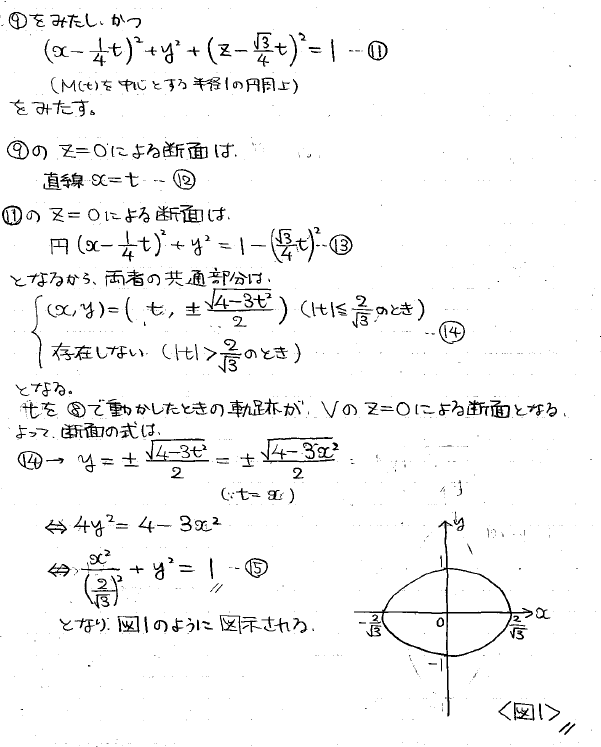 ⑨をみたし、かつ
(x-1/4 t)²+y²+(z-√3/4 t)²=1 …⑪
(M(t)を中心とする半径1の円周上)
をみたす。
⑨のz=0による断面は、
直線x=t …⑫
⑪のz=0による断面は、
円(x-1/4 t)²+y²=1-(√3/4 t)² …⑬
となるから、両者の共通部分は、
{(x,y)=(t, ±√(4-3t²)/2) (|t|≦2/√3のとき)
存在しない (|t|>2/√3のとき) …⑭
となる。
tを⑧で動かしたときの軌跡が、Vのz=0による断面となる。
よって、断面の式は、
⑭→ y=±√(4-3t²)/2=±√(4-3x²)/2
(∵t=x)
⇔4y²=4-3x²
⇔x²/(2/√3)²+y²=1 …⑮
となり、図1のように図示される。
y
1
-2/√3 0 2/√3 x
-1
<図1>